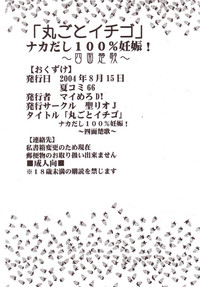 「丸ごとイチゴ」
ナカだし１００％妊娠！
～四面楚歌～
【おくづけ】
発行日　2004年8月15日
夏コミ66
発行者　マイめろD!
発行サークル　聖りオJ
タイトル「丸ごとイチゴ」
ナカだし１００％妊娠！
～四面楚歌～
【連絡先】
私書箱変更のため現在
郵便物のお取り扱い出来ません
■成人向■
※１８歳未満の購読を禁じます